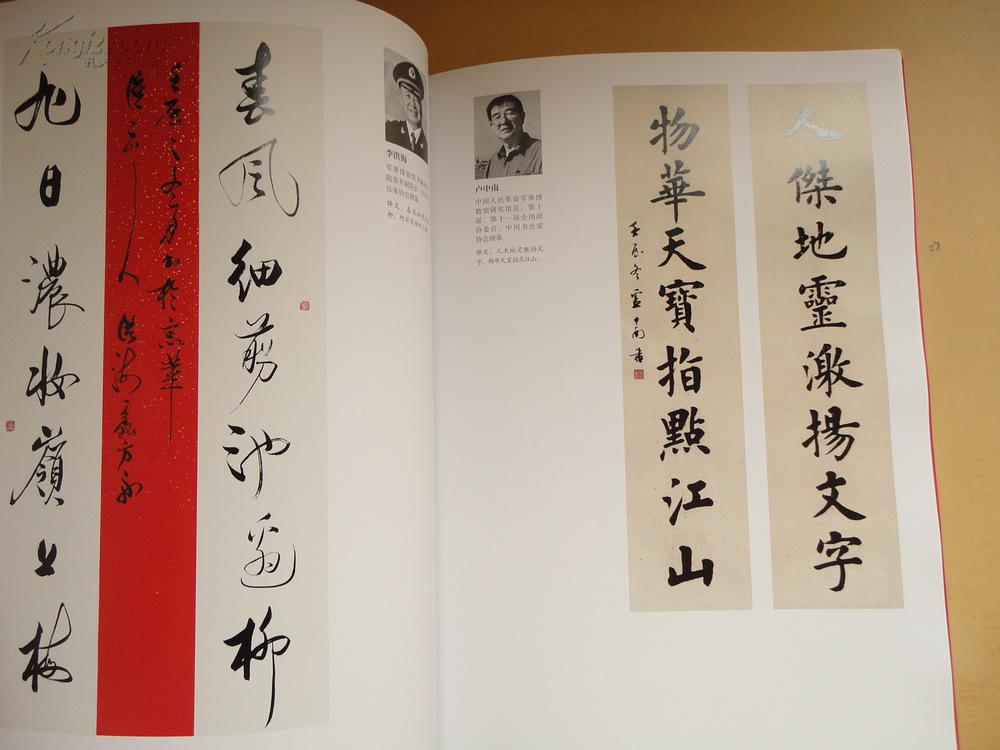 春風細剪池邊柳
旭日濃妝嶺上梅
壬辰之冬月书於京華
李洪海
军事博物馆
院常务副院长
法家协会理事。
卢中南
中国人民革命军事博
物馆研究馆员，第十
届、第十一届全国政
协委员，中国书法家
协会理事。
释文：人杰地灵激扬文
字，物华天宝指点江山。
人傑地靈激揚文字
物華天寶指點江山
壬辰冬盧中南書